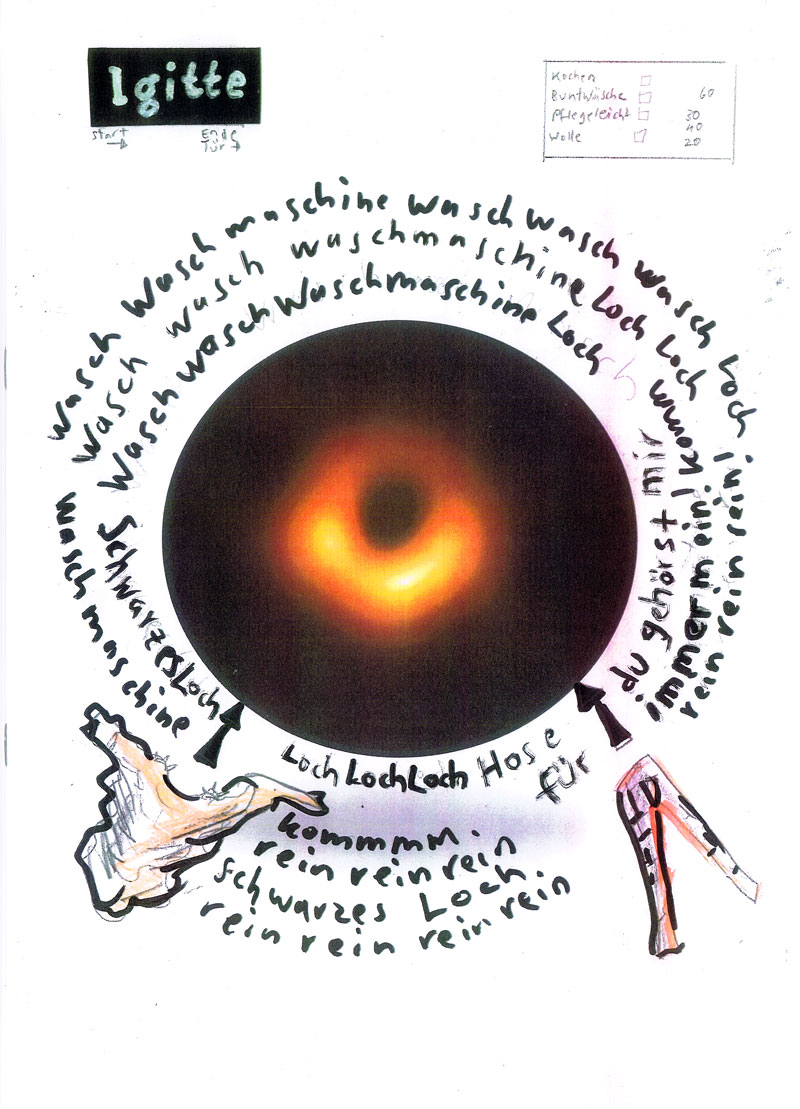 Igitte
start
Ende
Tür
Kochen
Buntwäsche 60
Pflegeleicht 30
40
Wolle 20
wasch wasch maschine wasch wasch wasch Loch
wasch wasch waschmaschine Loch Loch
wasch wasch waschmaschine Loch
waschmaschine
schwarzes Loch
Loch Loch Loch Hose für
immer mein! komm
du gehörst mir
rein rein rein!
kommmm.
rein rein rein
schwarzes Loch.
rein rein rein rein